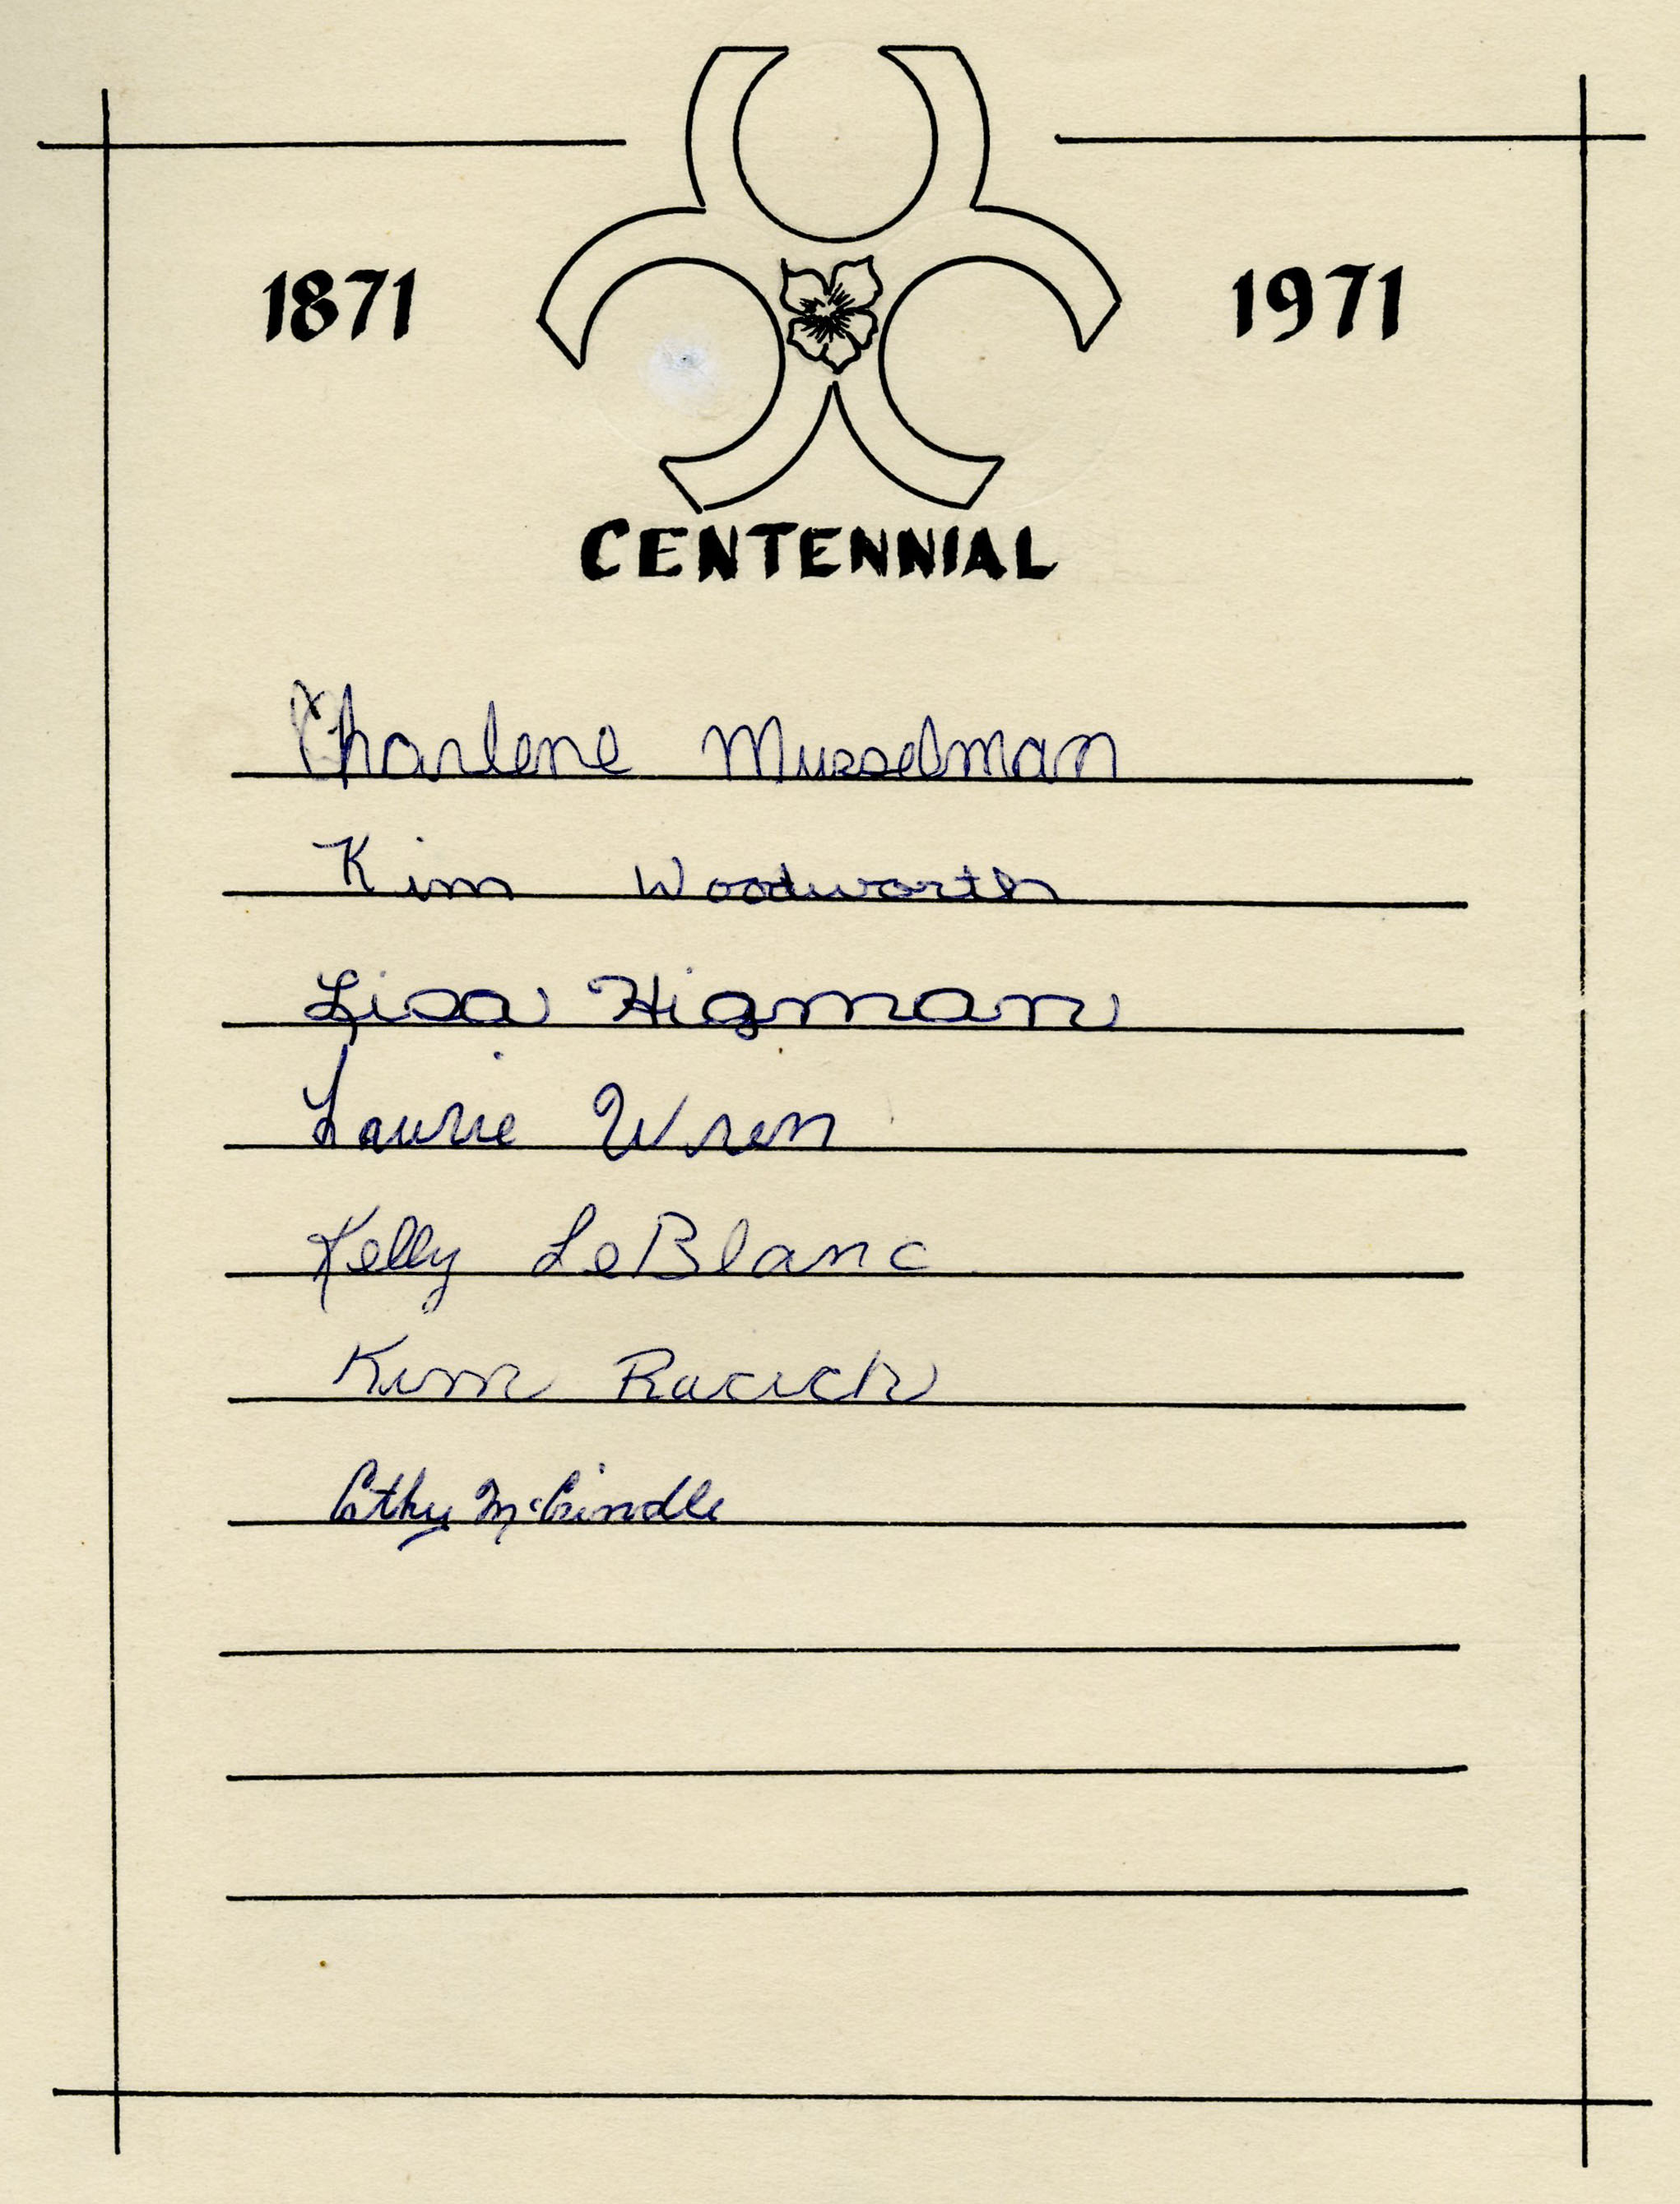 1871 1971
CENTENNIAL
Charlene Musselman
Kim Woodworth
Lisa Higman
Laurie Wren
Kelly LeBlanc
Kim Racich
Cathy McCrindle